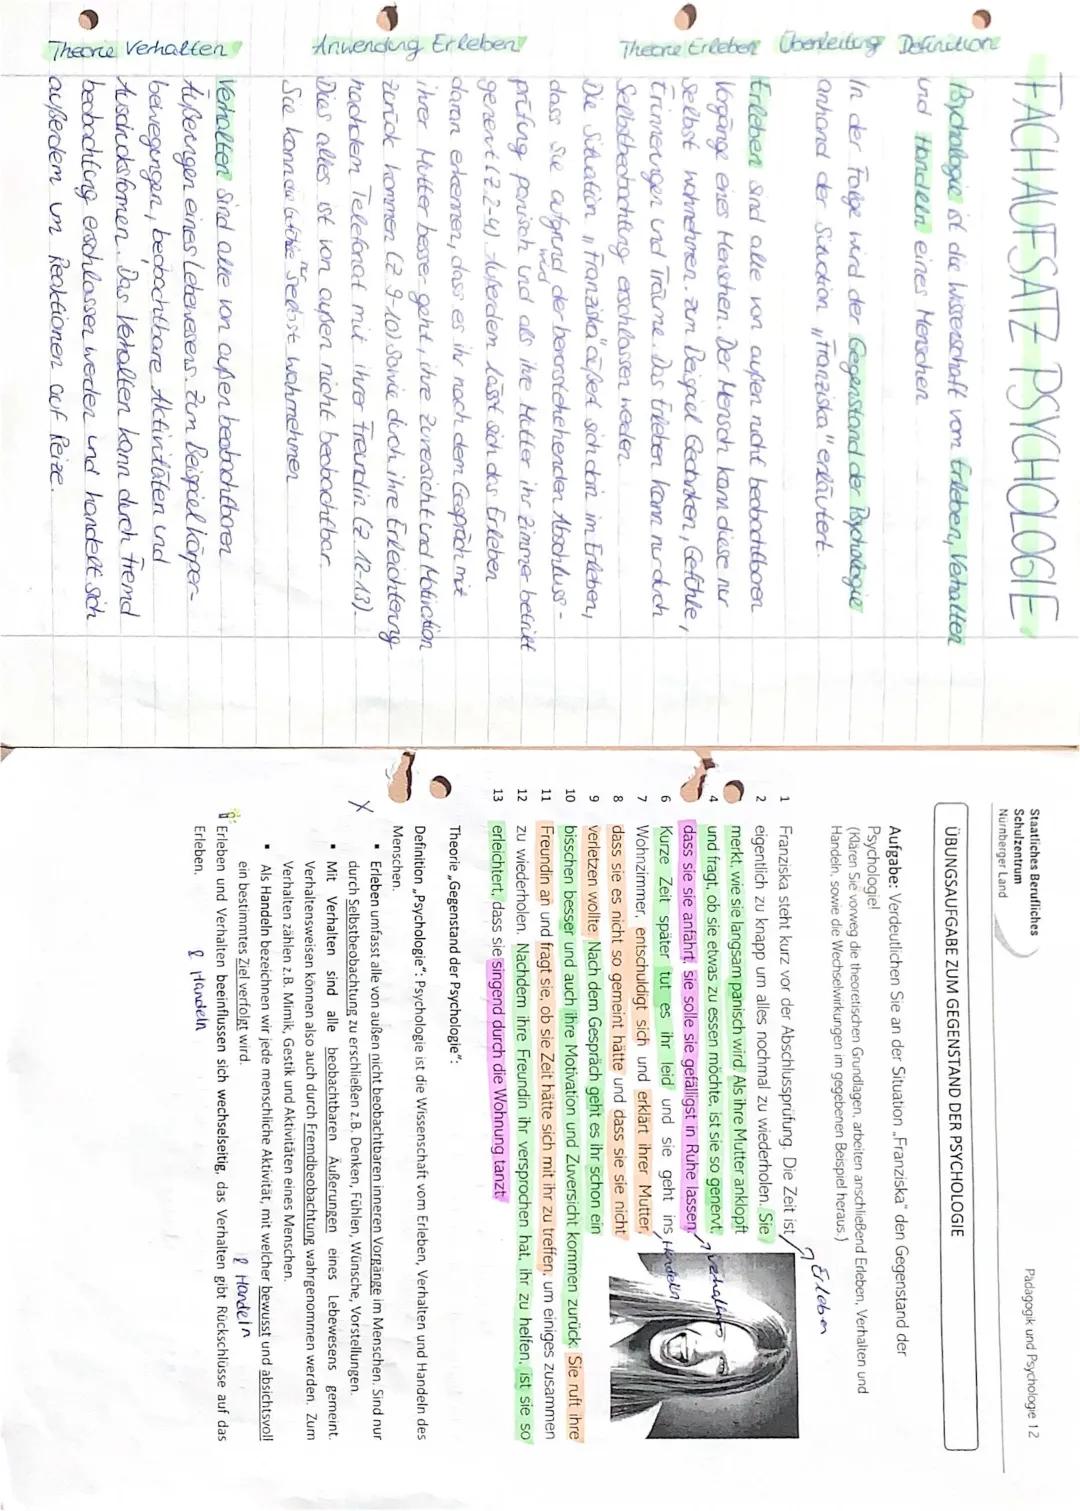 FACHAUFSATZ PSYCHOLOGIE
Definition
Psychologie ist die Wissenschaft vom Erleben, Verhalten
und Handeln eines Menschen.
Überleitung
In der Folge wird der Gegenstand der Psychologie
anhand der Situation „Franziska" erläutert.
Theorie Erleben
Erleben sind alle von außen nicht beobachtbaren
Vorgänge eines Menschen. Der Mensch kann diese nur
selbst wahrnehmen. Zum Beispiel Gedanken, Gefühle,
Erinnerungen und Träume. Das Erleben kann nur durch
Selbstbeobachtung erschlossen werden.
Anwendung Erleben
Die Situation „Franziska" äußert sich darin im Erleben,
dass sie aufgrund der bevorstehenden Abschluss-
prüfung panisch wird und als ihre Mutter ihr Zimmer betritt
genervt (Z 2-4). Außerdem lässt sich das Erleben
daran erkennen, dass es ihr nach dem Gespräch mit
ihrer Mutter besser geht, ihre Zuversicht und Motivation
zurück kommen (Z 9-10) sowie durch ihre Erleichterung
nach dem Telefonat mit ihrer Freundin (Z 12-13).
Dies alles ist von außen nicht beobachtbar.
Sie kann die Gefühle nur selbst wahrnehmen
Theorie Verhalten
Verhalten sind alle von außen beobachtbaren
Äußerungen eines Lebewesens. Zum Beispiel Körper-
bewegungen, beobachtbare Aktivitäten und
Ausdrucksformen. Das Verhalten kann durch Fremd
beobachtung erschlossen werden und handelt sich
außerdem um Reaktionen auf Reize.
Staatliches Berufliches
Schulzentrum
Nürnberger Land
Pädagogik und Psychologie 12
ÜBUNGSAUFGABE ZUM GEGENSTAND DER PSYCHOLOGIE
Aufgabe: Verdeutlichen Sie an der Situation „Franziska" den Gegenstand der
Psychologie!
(Klären Sie vorweg die theoretischen Grundlagen, arbeiten anschließend Erleben, Verhalten und
Handeln, sowie die Wechselwirkungen im gegebenen Beispiel heraus.)
1 Franziska steht kurz vor der Abschlussprüfung. Die Zeit ist
2 eigentlich zu knapp um alles nochmal zu wiederholen. Sie
merkt, wie sie langsam panisch wird. Als ihre Mutter anklopft
4 und fragt, ob sie etwas zu essen möchte, ist sie so genervt,
dass sie sie anfährt, sie solle sie gefälligst in Ruhe lassen.
6 Kurze Zeit später tut es ihr leid und sie geht ins
7 Wohnzimmer, entschuldigt sich und erklärt ihrer Mutter,
8 dass sie es nicht so gemeint hätte und dass sie sie nicht
9 verletzen wollte. Nach dem Gespräch geht es ihr schon ein
10 bisschen besser und auch ihre Motivation und Zuversicht kommen zurück. Sie ruft ihre
11 Freundin an und fragt sie, ob sie Zeit hätte sich mit ihr zu treffen, um einiges zusammen
12 zu wiederholen. Nachdem ihre Freundin ihr versprochen hat, ihr zu helfen, ist sie so
13 erleichtert, dass sie singend durch die Wohnung tanzt.
Erleben
Verhalten
Handeln
Theorie „Gegenstand der Psychologie":
Definition „Psychologie": Psychologie ist die Wissenschaft vom Erleben, Verhalten und Handeln des
Menschen.
▪ Erleben umfasst alle von außen nicht beobachtbaren inneren Vorgänge im Menschen. Sind nur
durch Selbstbeobachtung zu erschließen z.B. Denken, Fühlen, Wünsche, Vorstellungen.
▪ Mit Verhalten sind alle beobachtbaren Äußerungen eines Lebewesens gemeint.
Verhaltensweisen können also auch durch Fremdbeobachtung wahrgenommen werden. Zum
Verhalten zählen z.B. Mimik, Gestik und Aktivitäten eines Menschen.
▪ Als Handeln bezeichnen wir jede menschliche Aktivität, mit welcher bewusst und absichtsvoll
ein bestimmtes Ziel verfolgt wird.
& Handeln
Erleben und Verhalten beeinflussen sich wechselseitig, das Verhalten gibt Rückschlüsse auf das
Erleben.
& Handeln